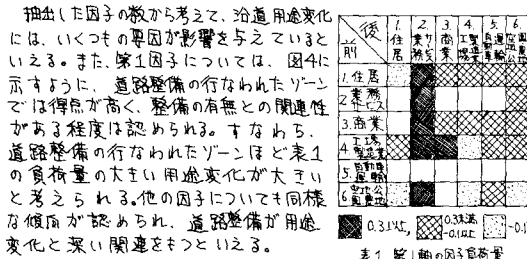 抽出した因子の数から考えて、沿道用途変化
には、いくつもの要因が影響を与えていると
いえる。また、第1因子については、図4に
示すように、道路整備の行なわれたゾーン
では得点が高く、整備の有無との関連性
がある程度は認められる。すなわち、
道路整備の行なわれたゾーンほど表1
の負荷量の大きい用途変化が大きい
と考えられる。他の因子についても同様
な傾向が認められ、道路整備が用途
変化と深い関連をもつといえる。
後
前
1. 住居
2. 業務サービス
3. 商業
4. 工場製造業
5. 自動車運輸
6.
1. 住居
2. 業務サービス
3. 商業
4. 工場製造業
5. 自動車運輸
6. 空地公園農地
0.3以上,
0.3未満-0.1以上
-0.1
表1 第1軸の因子負荷量